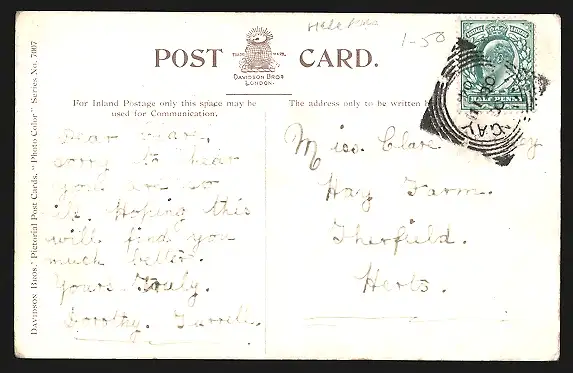 1-50
POST CARD.
TRADE MARK.
DAVIDSON BROS
LONDON.
For Inland Postage only this space may be
used for Communication.
The address only to be written
HALF PENNY
Dear Clare.
sorry to hear
you are so
ill. Hoping this
will find you
much better.
Yours Truly.
Dorothy.
Miss. Clare
Hay Farm.
Therfield.
Herts.
Davidson Bros.' Pictorial Post Cards. "Photo Color" Series No. 7007